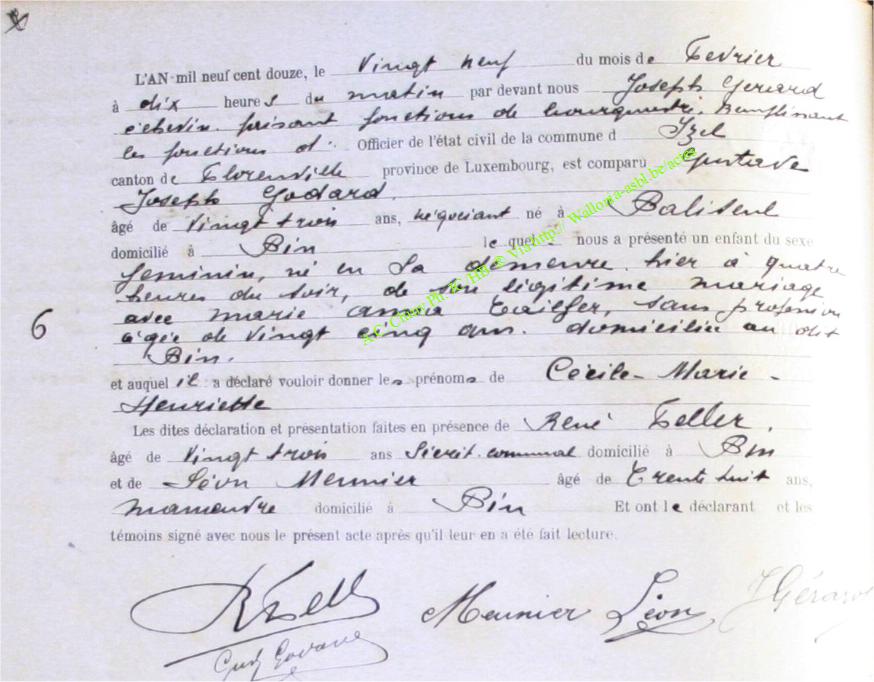 6
L'AN mil neuf cent douze, le Vingt neuf du mois de Fevrier
à dix heures du matin par devant nous Joseph Gerard
échevin faisant fonctions de bourgmestre, Remplissant
les fonctions d' Officier de l'état civil de la commune d Izel
canton de Florenville province de Luxembourg, est comparu Gustave
Joseph Godard
âgé de Vingt trois ans, négociant né à
domicilié à Pin lequel nous a présenté un enfant du sexe
feminin, né en sa demeure hier à quatre
heures du soir, de son légitime mariage
avec marie anna, sans profession
âgée de Vingt cinq ans. domiciliée au dit
Pin.
et auquel il a déclaré vouloir donner les prénoms de Cécile-Marie-
Henriette
Les dites déclaration et présentation faites en présence de René Feller,
âgé de Vingt trois ans communal domicilié à Pin
et de Léon Meunier âgé de Trente huit ans,
domicilié à Pin Et ont le déclarant et les
témoins signé avec nous le présent acte après qu'il leur en a été fait lecture.
RFell Meunier Léon J Gérard
A.C. Chiny Ph. Via http:// Wallonia-asbl.be/actes